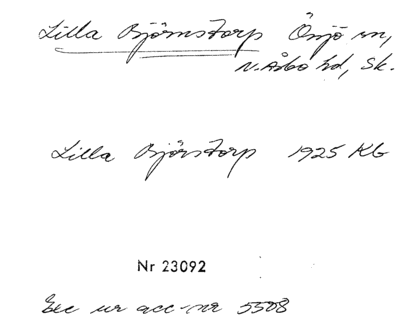 Lilla Björnstorp Össjö sn,
N. Åsbo hd, Sk.
Lilla Björstorp 1925 Kb
Nr 23092
Exc ur acc-nr 5508